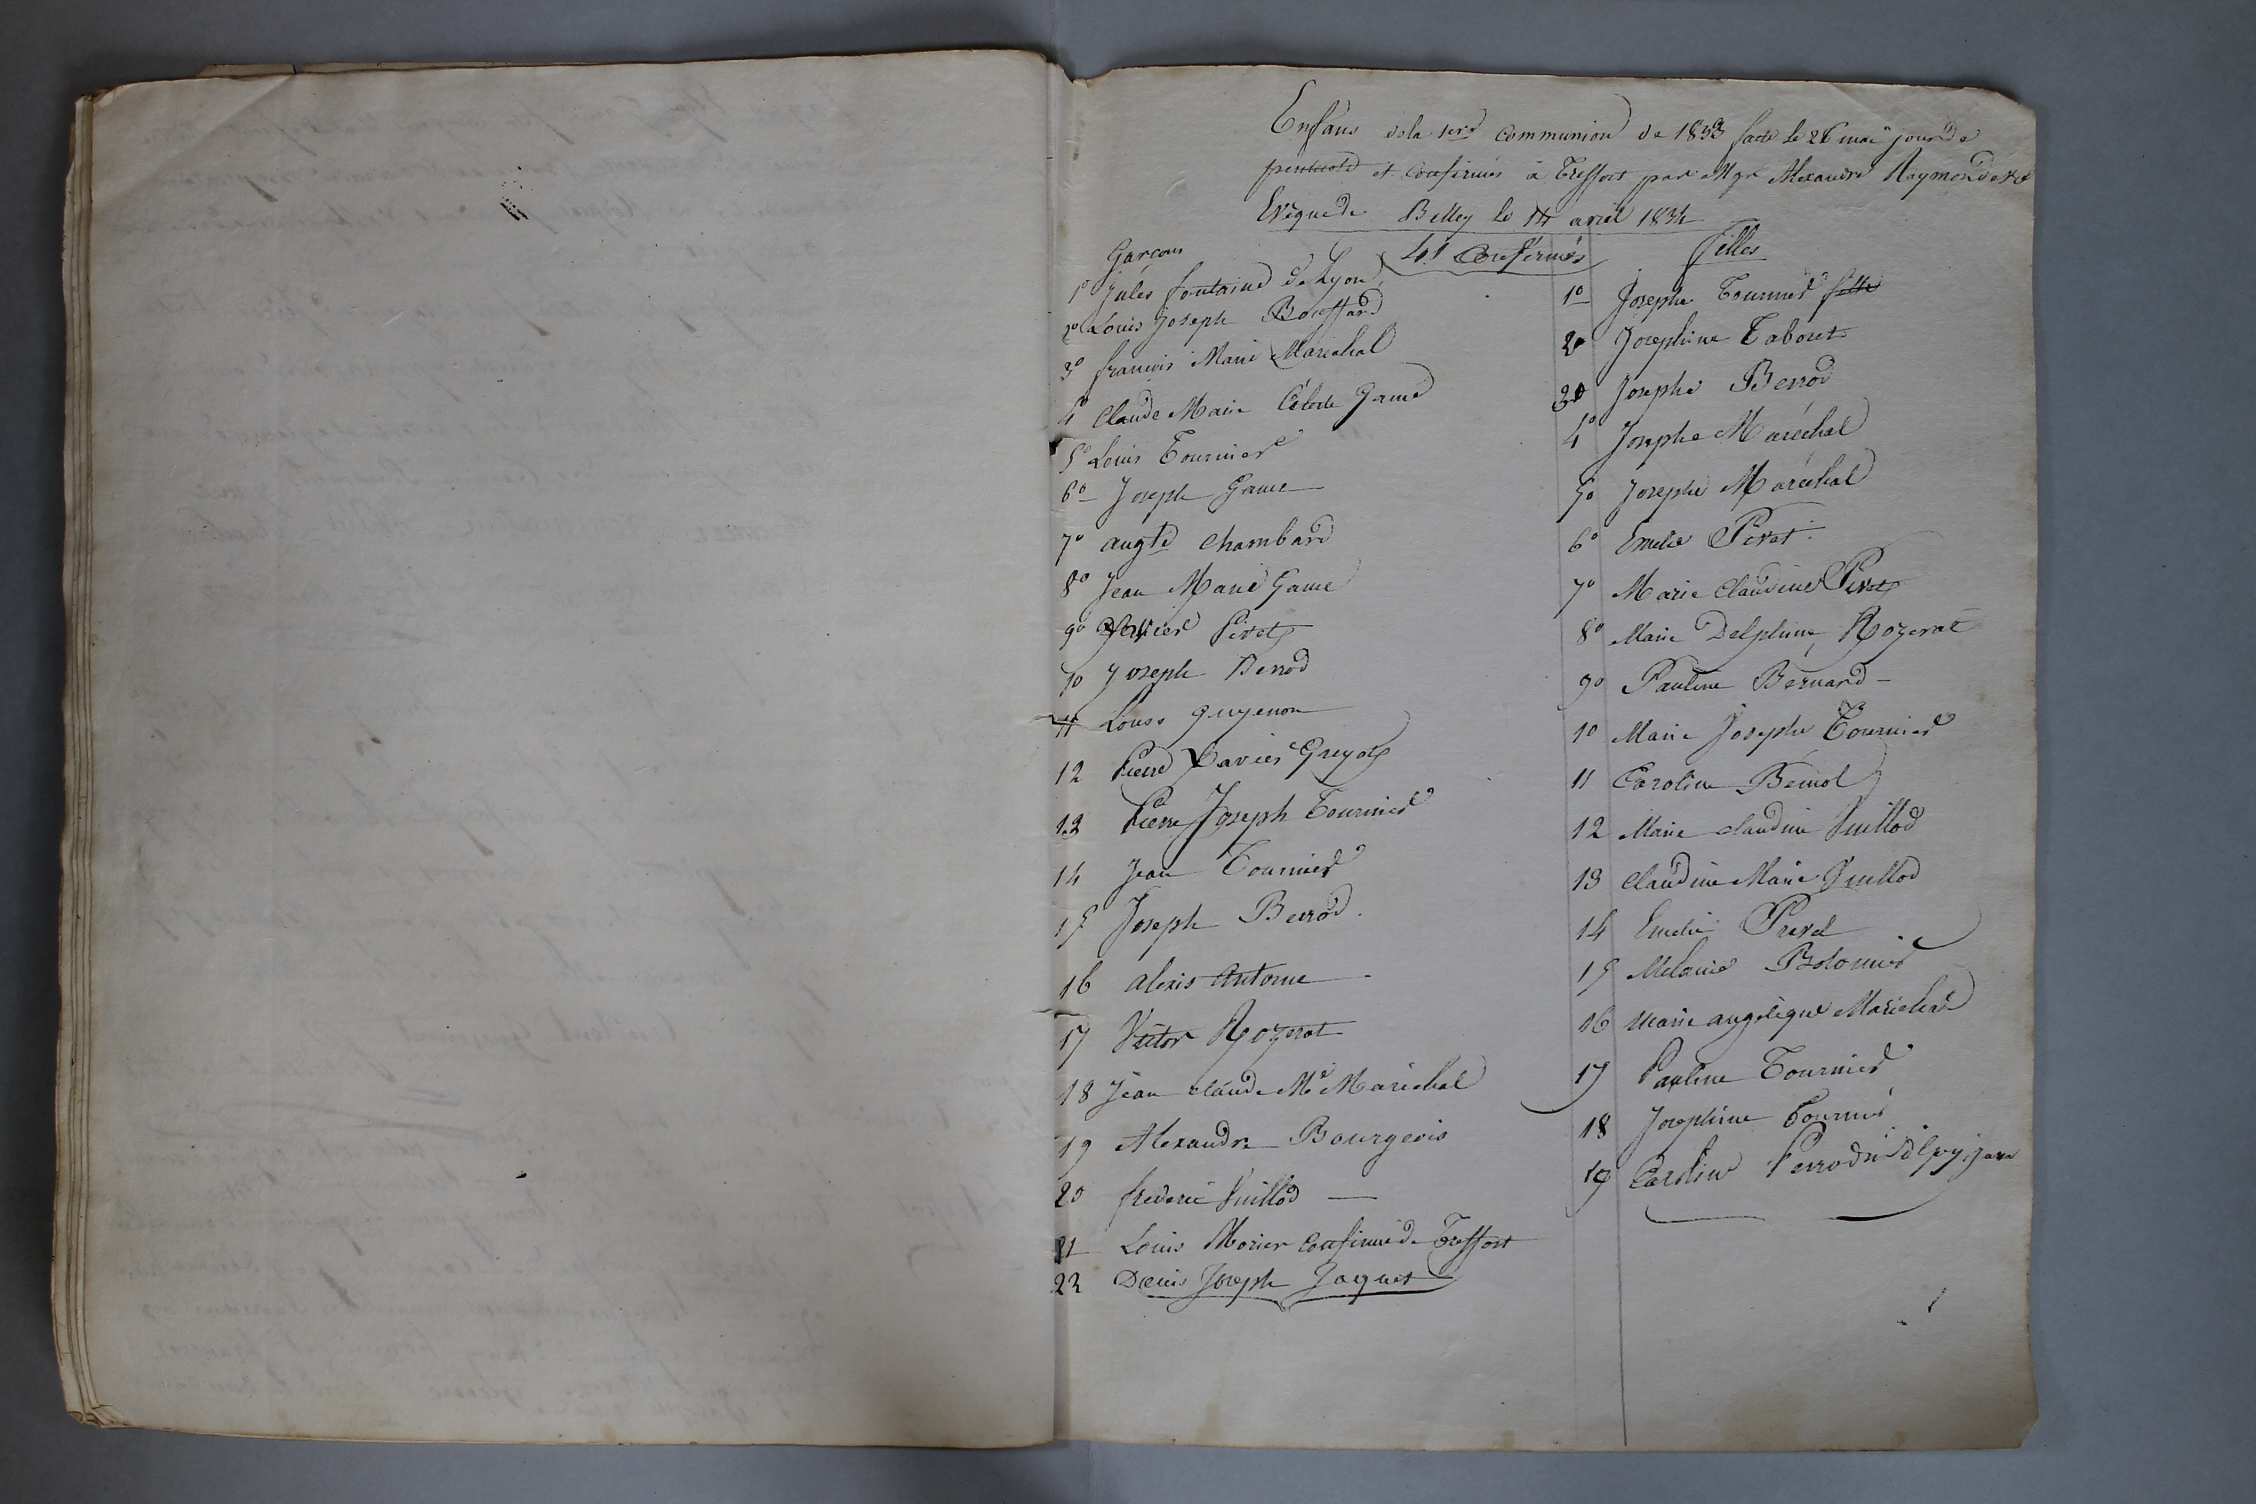 Enfans de la 1ere Communion de 1833 faite le 26 mai jour de
pentecote et confirmés à Treffort par Mgr Alexandre Raymond devie
Evêque de Belley le 14 avril 1834
41 Confirmés
Garçons
1º Jules fontaine de Lyon
2º Louis Joseph Bouffard
3º francois Marie Maréchal
4º Claude Marie Céleste Game
5º Louis Tournier
6º Joseph Game
7º augte Chambard
8º Jean Marie Game
9º Pivet
10 Joseph Berrod
11 Louis guyenon
12 Pierre Xavier Greyot
13 Pierre Joseph Tournier
14 Jean Tournier
15 Joseph Berrod.
16 alexis Antoine
17 Victor Rozerat
18 Jean Claude Me Maréchal
19 Alexandre Bourgeois
20 frederic Vuillod
21 Louis Morier Confirmé de Treffort
22 Denis Joseph Jaquet
filles
1º Josephe Tournier fille
2º Josephine Taboret
3º Josephe Berrod
4º Josephe Maréchal
5º Josephe Maréchal
6º Emelie Pivet.
7º Marie Claudine Pivet
8º Marie Delphine Rozerat
9º Pauline Bernard
10 Marie Josephe Tournier
11 Caroline Bémol
12 Marie claudine Vuillod
13 Claudine Marie Vuillod
14 Emelie Prevel
15 Melanie Bolomier
16 Marie angelique Maréchal
17 Pauline Tournier
18 Josephine Tournier
19 Caroline Perrodi